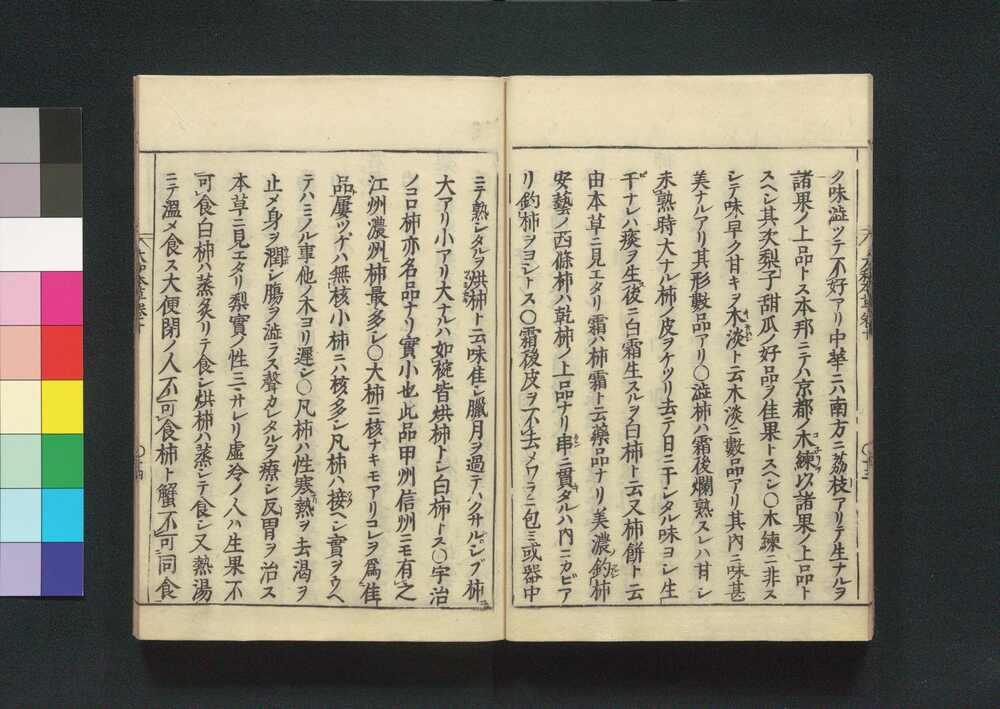 ク味澁ツテ不好アリ中華ニハ南方ニ茘枝アリテ生ナルヲ
諸果ノ上品トス本邦ニテハ京都ノ木練以諸果ノ上品ト
スヘシ其次梨子甜瓜ノ好品ヲ佳果トスヘシ〇木練ニ非ス
シテ味早ク甘キヲ木淡ト云木淡ニ數品アリ其内ニ味甚
美ナルアリ其形數品アリ〇澁柿ハ霜後爛熟スレハ甘シ
未熟時大ナル柿ノ皮ヲケツリ去テ日ニ干シタル味ヨシ生
干ナレハ痰ヲ生後ニ白霜生スルヲ白柿ト云又柿餅ト云
由本草ニ見エタリ霜ハ柿霜ト云藥品ナリ美濃釣柿
安藝ノ西條柿ハ乾柿ノ上品ナリ串ニ貫タルハ内ニカビア
リ釣柿ヲヨシトス〇霜後皮ヲ不去メワラニ包ミ或器中
ニテ熟シタルヲ烘柿ト云味佳シ臘月ヲ過テハクサルシブ柿
大アリ小アリ大ナルハ如碗皆烘柿トシ白柿トス〇宇治
ノコロ柿亦名品ナリ實小也此品甲州信州ニモ有之
江州濃州柿最多シ〇大柿ニ核ナキモアリコレヲ爲佳
品屢ツゲハ無核小柿ニハ核多シ凡柿ハ接ヘシ實ヲウヘ
テハミノル事他ノ木ヨリ遲シ〇凡柿ハ性寒熱ヲ去渇ヲ
止メ身ヲ潤シ腸ヲ澁ラス聲カレタルヲ療シ反胃ヲ治ス
本草ニ見エタリ梨實ノ性ニサレリ虚冷ノ人ハ生果不
可食白柿ハ蒸炙リテ食シ烘柿ハ蒸シテ食シ又熱湯
ニテ溫メ食ス大便閉ノ人不可食柿ト蟹不可同食